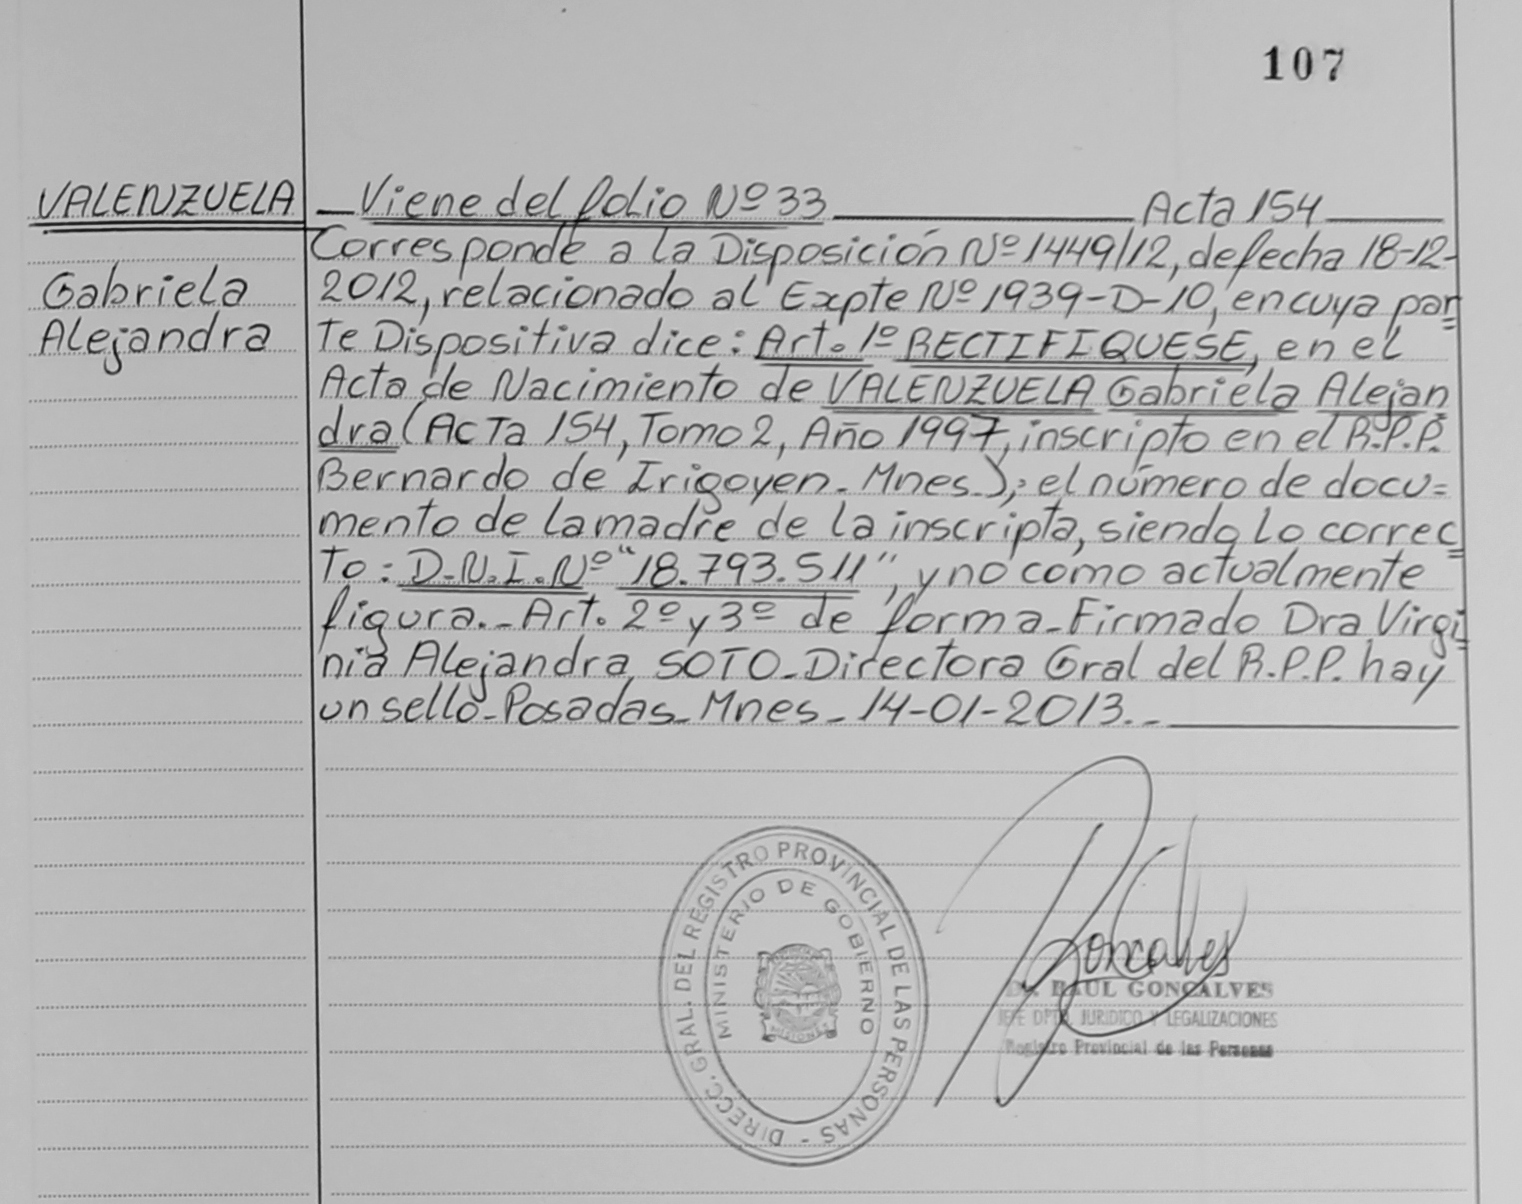 107
VALENZUELA
Gabriela
Alejandra
Viene del folio Nº 33 Acta 154
Corresponde a la Disposición Nº 1449/12, de fecha 18-12-
2012, relacionado al Expte Nº 1939-D-10, en cuya par=
te Dispositiva dice: Art. 1º RECTIFIQUESE, en el
Acta de Nacimiento de VALENZUELA Gabriela Alejan=
dra (Acta 154, Tomo 2, Año 1997, inscripto en el R.P.P.
Bernardo de Irigoyen. Mnes.); el número de docu=
mento de la madre de la inscripta, siendo lo correc=
to: D.N.I. Nº "18.793.511", y no como actualmente
figura.- Art. 2º y 3º de forma-Firmado Dra Virgi=
nia Alejandra SOTO-Directora Gral del R.P.P. hay
un sello-Posadas-Mnes-14-01-2013.-
DIRECC. GRAL. DEL REGISTRO PROVINCIAL DE LAS PERSONAS -
MINISTERIO DE GOBIERNO
MISIONES
Goncalves
Dr. RAUL GONÇALVES
JEFE DPTO. JURIDICO Y LEGALIZACIONES
Registro Provincial de las Personas